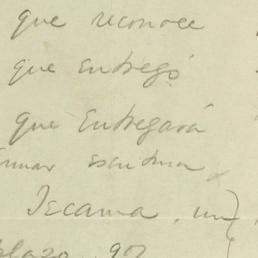 que reconoce
que entregó
que entregará
escritura
Tecama, un
plazo 90